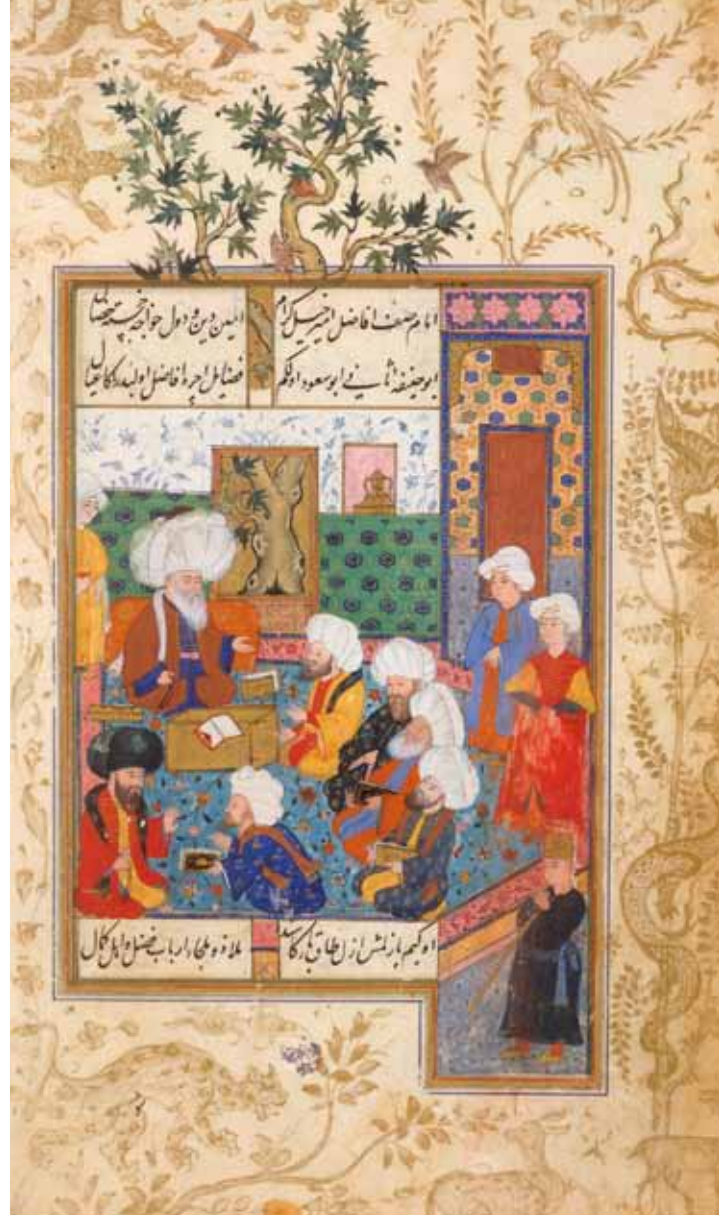 امام صف افاضل امیر خیل کرام
امین دین و دول خواجه خجسته خصال
ابو حنیفه ثانی ابو سعود اولکم
فضایل ایچره افاضل اولبدر اکا عیال
اوکیم یازلمش ازل طاق
ملاذ و ملجا ارباب فضل و اهل کمال